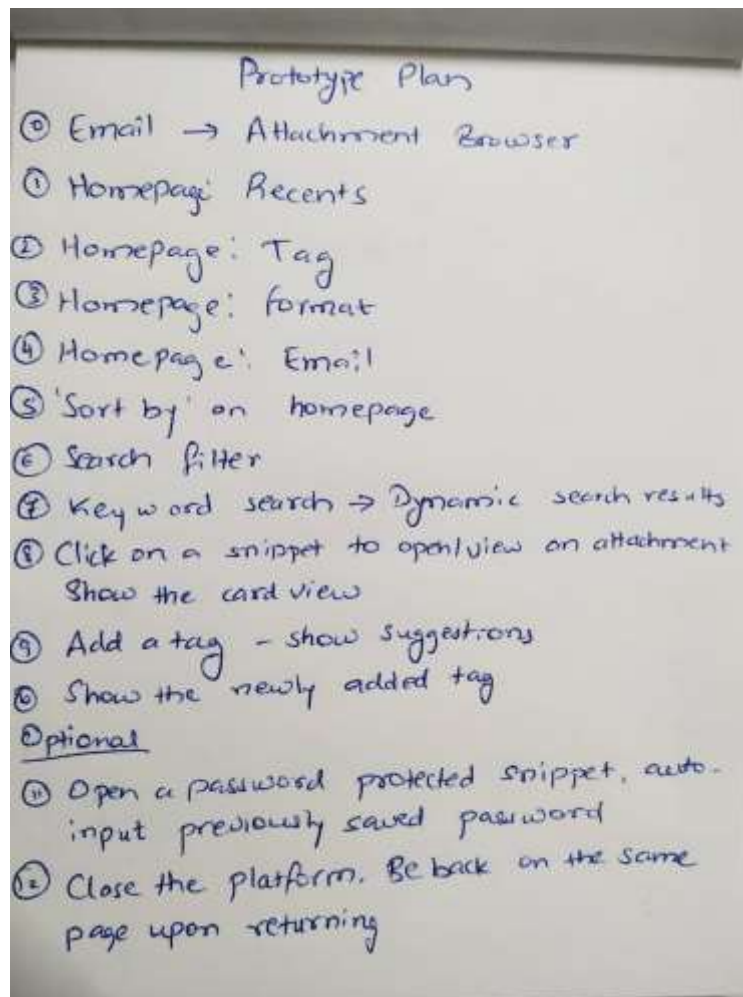 Prototype Plan
⓪ Email → Attachment Browser
① Homepage: Recents
② Homepage: Tag
③ Homepage: format
④ Homepage: Email
⑤ 'Sort by' on homepage
⑥ Search filter
⑦ Keyword search → Dynamic search results
⑧ Click on a snippet to open/view an attachment
Show the card view
⑨ Add a tag - show suggestions
⑩ Show the newly added tag
Optional
⑪ Open a password protected snippet, auto-
input previously saved password
⑫ Close the platform. Be back on the same
page upon returning